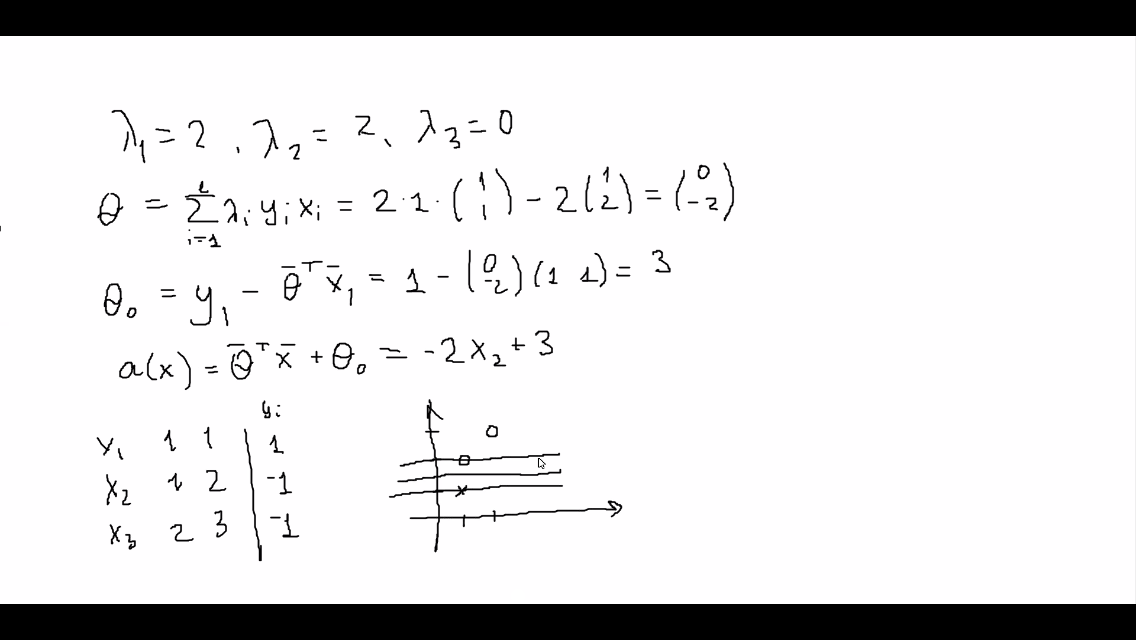 λ₁ = 2 , λ₂ = 2, λ₃ = 0
θ = ∑ᵢ₌₁ˡ λᵢ yᵢ xᵢ = 2·1·(1 1) − 2(1 2) = (0 −2)
θ₀ = y₁ − θ̄ᵀ x̄₁ = 1 − (0 −2)(1 1) = 3
a(x) = θ̄ᵀ x̄ + θ₀ = −2x₂ + 3
yᵢ
x₁ 1 1 1
x₂ 1 2 −1
x₃ 2 3 −1